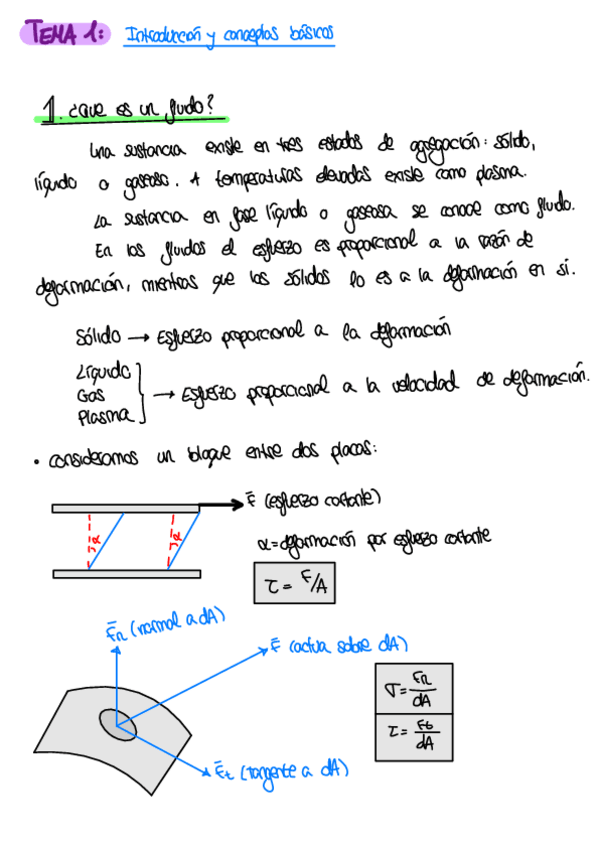 TEMA 1: Introducción y conceptos básicos
1. ¿Que es un fluido?
Una sustancia existe en tres estados de agregación: sólido,
líquido o gaseoso. A temperaturas elevadas existe como plasma.
La sustancia en fase líquido o gaseosa se conoce como fluido.
En los fluidos el esfuerzo es proporcional a la razón de
deformación, mientras que los sólidos lo es a la deformación en si.
Sólido → Esfuerzo proporcional a la deformación
Líquido
Gas
Plasma
→ Esfuerzo proporcional a la velocidad de deformación.
• consideramos un bloque entre dos placas:
F̄ (esfuerzo cortante)
α
α
α = deformación por esfuerzo cortante
τ = F/A
F̄n (normal a dA)
F̄ (actua sobre dA)
σ = Fn/dA
τ = Ft/dA
F̄t (tangente a dA)